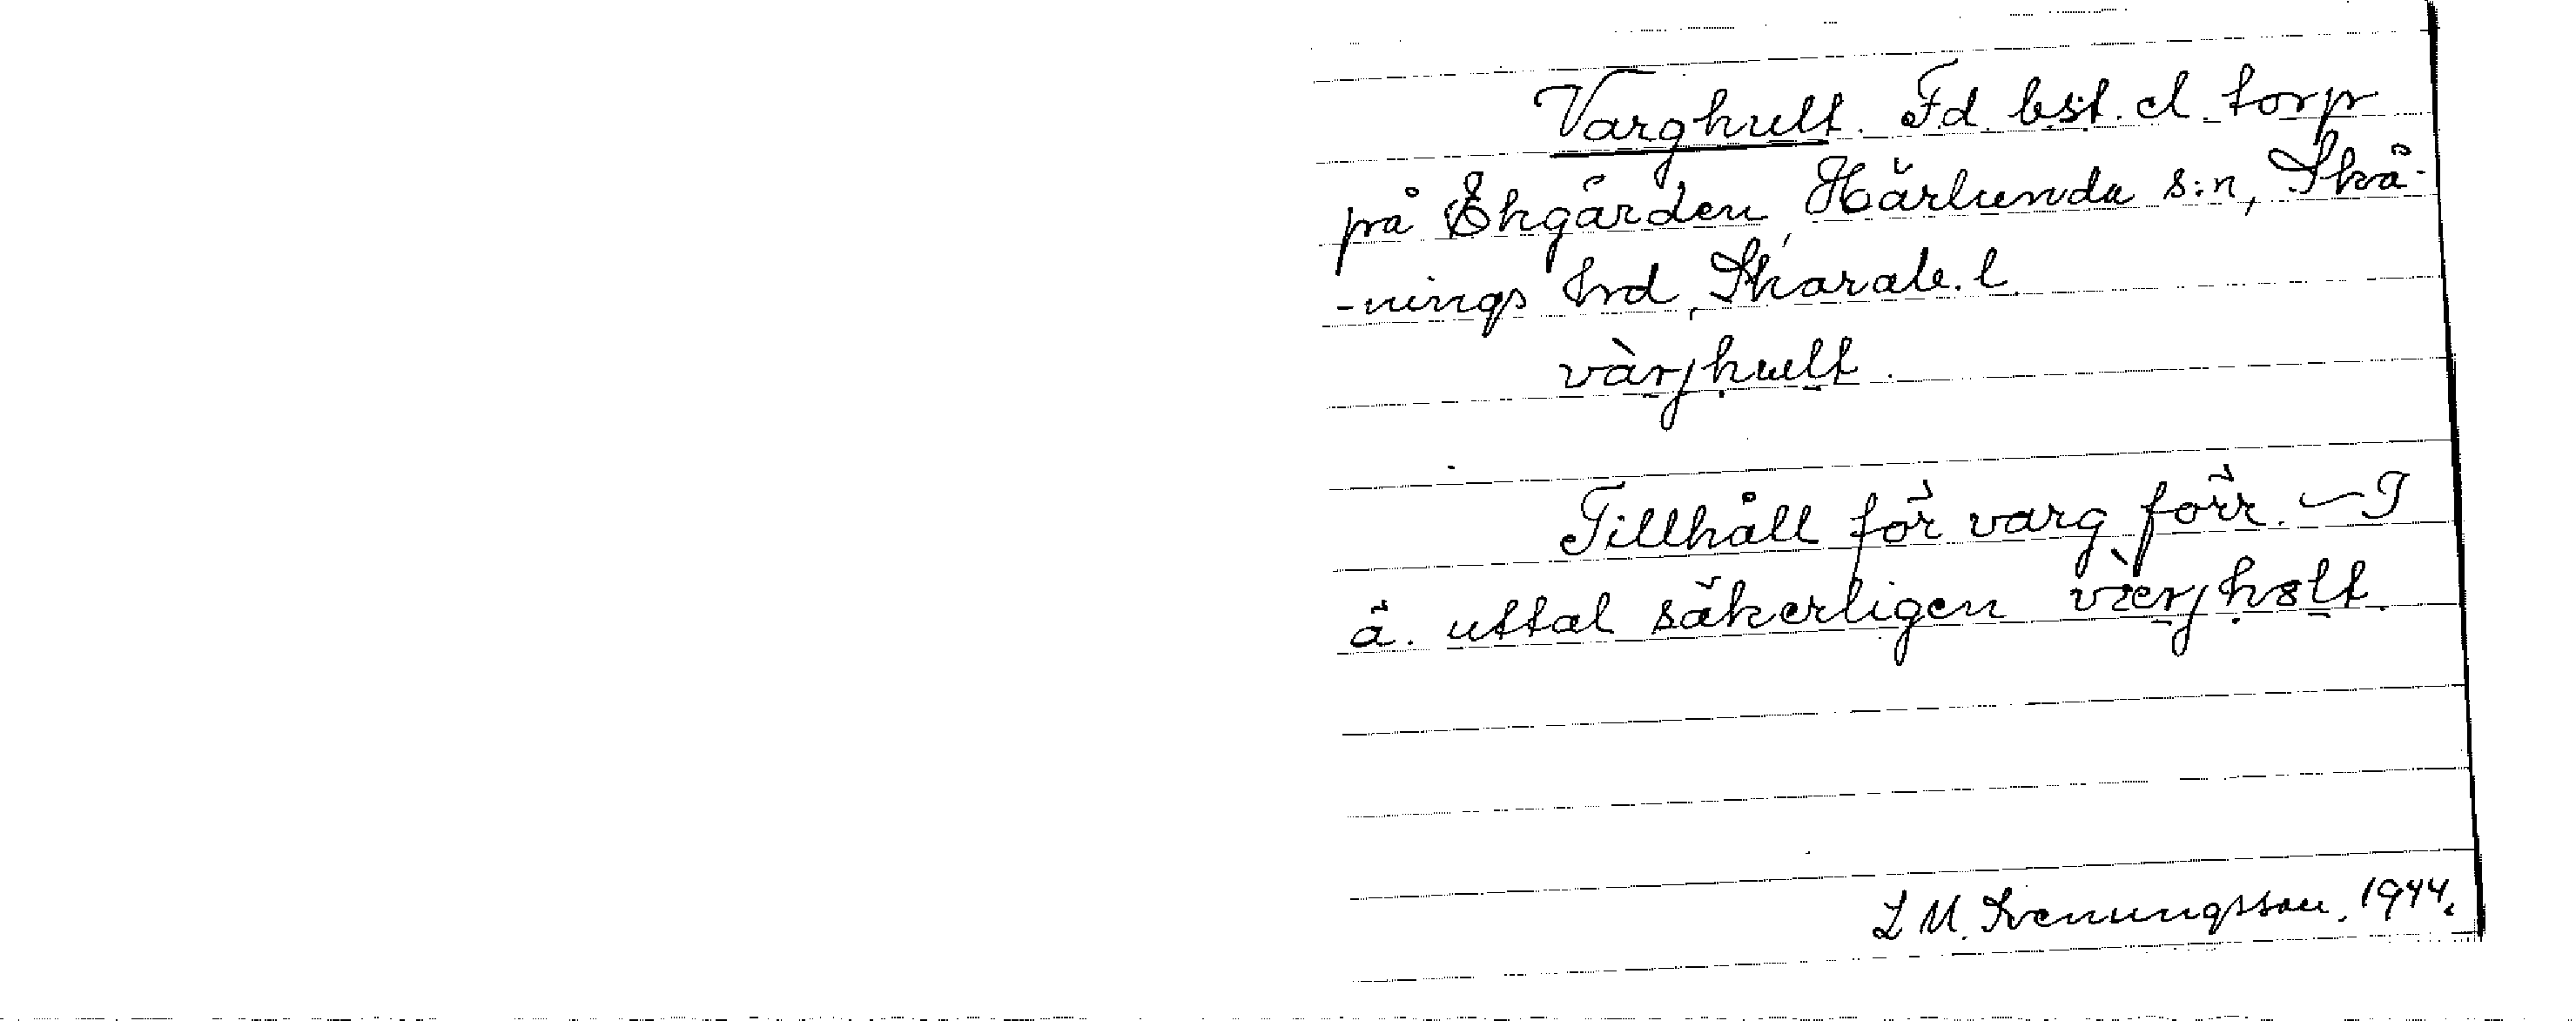 Varghult. F.d. bst. el. torp
på Ekgården, Härlunda s:n, Skå-
-nings hrd, Skarab. l.
vàrjhult.
Tillhåll för varg förr. – I
ä. uttal säkerligen
L M. Svenungsson. 1944.